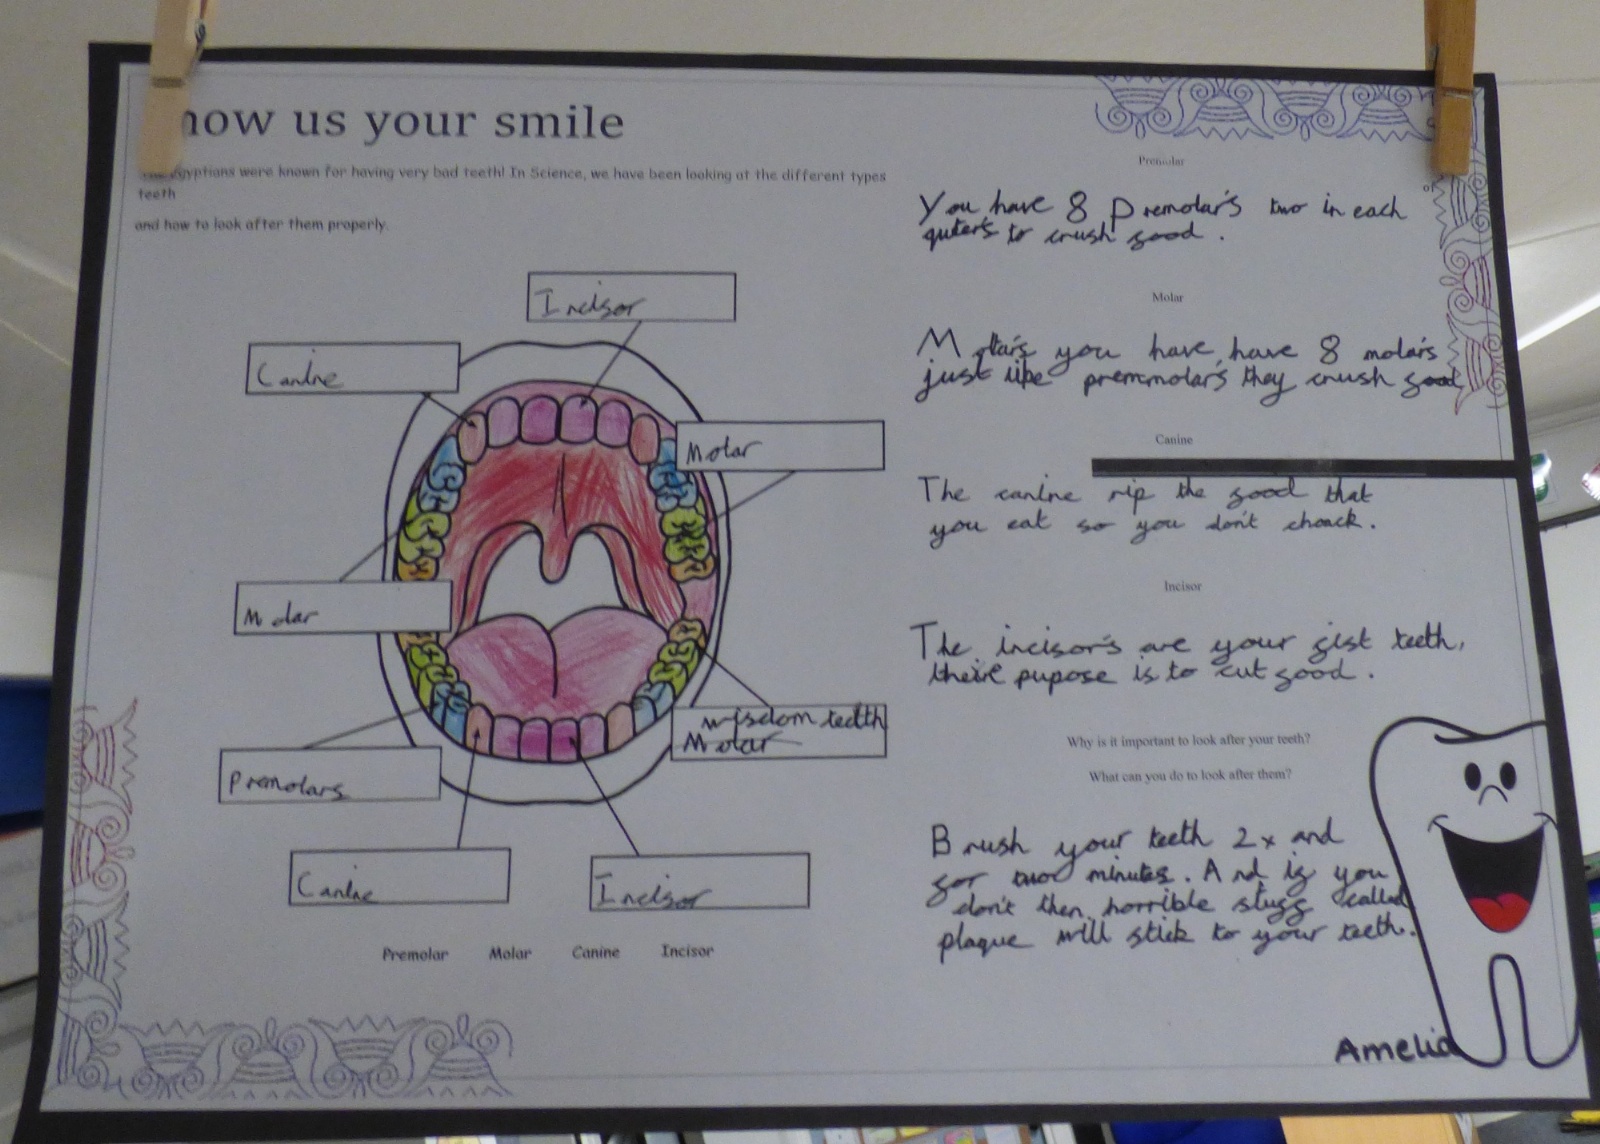 how us your smile
Egyptians were known for having very bad teeth! In Science, we have been looking at the different types of
teeth
and how to look after them properly.
Incisor
Canine
Molar
Molar
wisdom teeth
Molar
Premolars
Canine
Incisor
Premolar Molar Canine Incisor
Premolar
You have 8 premolar's two in each
quter's to crush food.
Molar
you have have 8 molar's
just like premmolar's they crush food
Canine
The canine rip the food that
you eat so you don't choack.
Incisor
The incisor's are your fist teeth,
pupose is to cut food.
Why is it important to look after your teeth?
What can you do to look after them?
Brush your teeth 2x and
for two minutes. And if you
don't then horrible stuff called
plaque will stick to your teeth.
Amelia